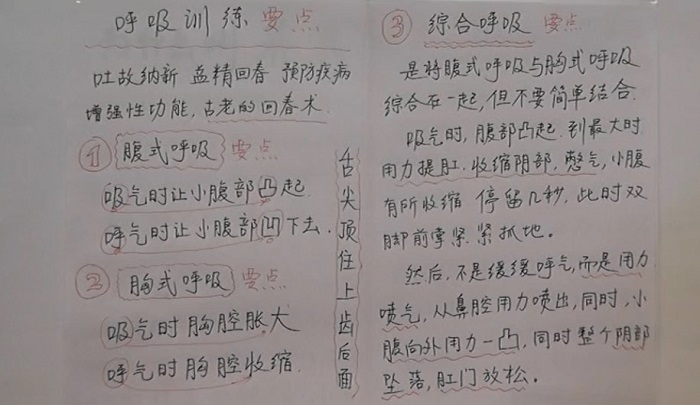 呼吸训练 要点
吐故纳新 益精回春 预防疾病
增强性功能,古老的回春术
① 腹式呼吸 要点
吸气时让小腹部凸起.
呼气时让小腹部凹下去.
② 胸式呼吸 要点
吸气时胸腔胀大
呼气时胸腔收缩
舌尖顶住上齿后面
③ 综合呼吸 要点
是将腹式呼吸与胸式呼吸
综合在一起,但不要简单结合.
吸气时,腹部凸起.到最大时
用力提肛.收缩阴部,憋气,小腹
有所收缩 停留几秒,此时双
脚前掌紧紧抓地。
然后,不是缓缓呼气,而是用力
喷气,从鼻腔用力喷出,同时,小
腹向外用力一凸,同时整个阴部
坠落,肛门放松。